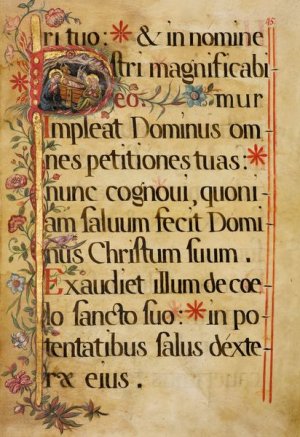 45.
ri tuo: * & in nomine
ſtri magnificabi-
eo. mur
Impleat Dominus om-
nes petitiones tuas: *
nunc cognoui, quoni-
am ſaluum fecit Domi-
nus Chriſtum ſuum .
Exaudiet illum de cœ-
lo ſancto ſuo: * in po-
tentatibus ſalus déxte-
ræ eius .